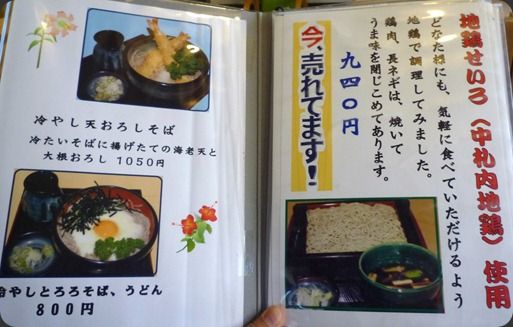 冷やし天おろしそば
冷たいそばに揚げたての海老天と
大根おろし 1050円
冷やしとろろそば、うどん
800円
地鶏せいろ(中札内地鶏)使用
どなた様にも、気軽に食べていただけるよう
地鶏で調理してみました。
鶏肉、長ネギは、焼いて
うま味を閉じこめてあります。
九四〇円
今、売れてます!